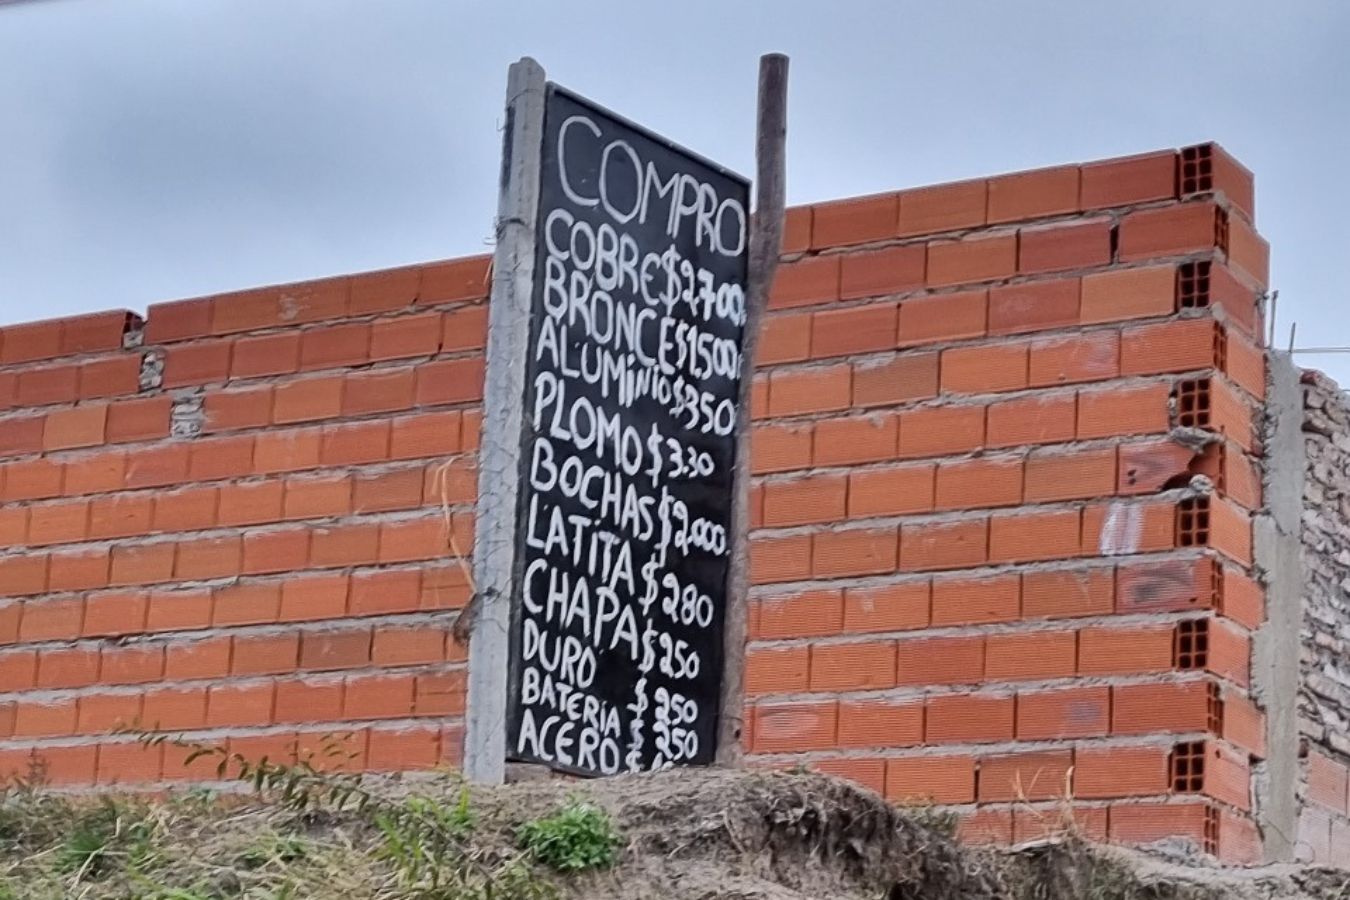 COMPRO
COBRE $2,700
BRONCE $1,500
ALUMINIO $350
PLOMO $330
BOCHAS $2.000.
LATITA $280
CHAPA $250
DURO $250
BATERIA $250
ACERO